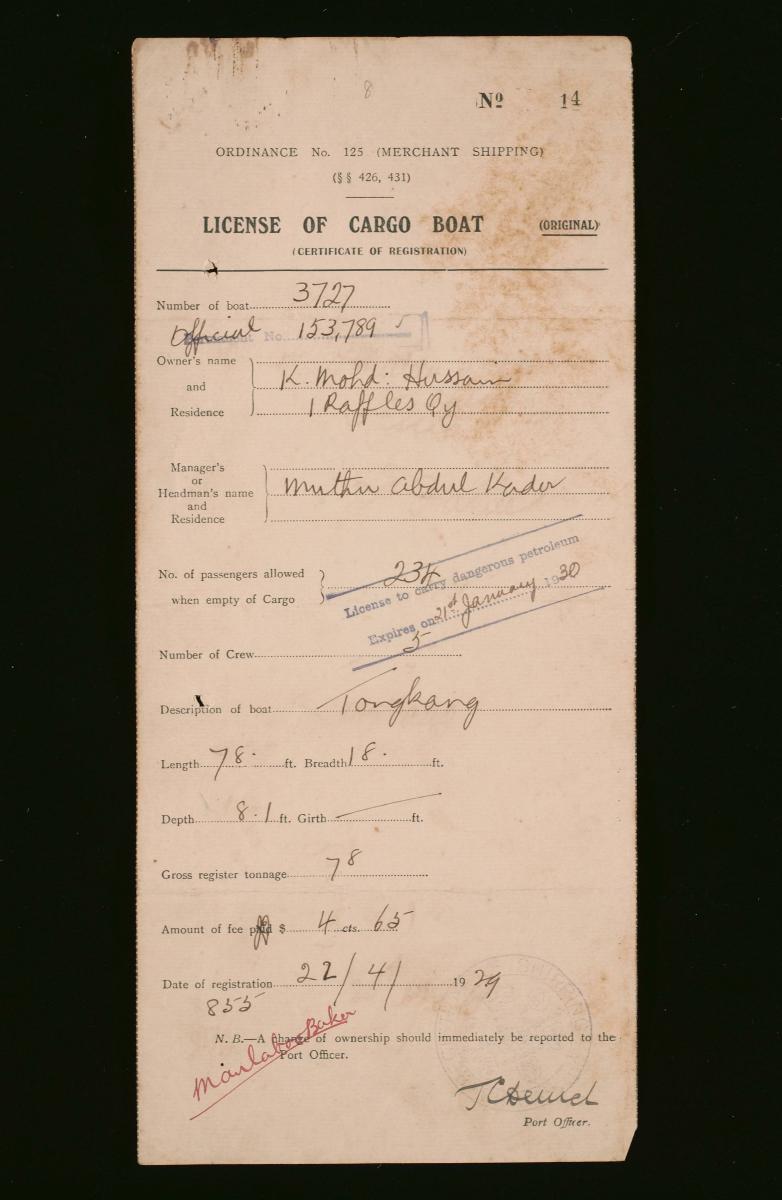 8
No 14
ORDINANCE No. 125 (MERCHANT SHIPPING)
(§ § 426, 431)
LICENSE OF CARGO BOAT (ORIGINAL)
(CERTIFICATE OF REGISTRATION)
Number of boat 3727
Official No. 153,789
Owner's name
and K. Mohd: Hussain
Residence 1 Raffles Qy
Manager's
or
Headman's name Muthu Abdul Kader
and
Residence
No. of passengers allowed 234
when empty of Cargo
License to carry dangerous petroleum
Expires on 21st January 1930
Number of Crew 5
Description of boat Tongkang
Length 78. ft. Breadth 18. ft.
Depth 8.1 ft. Girth ft.
Gross register tonnage 78
Amount of fee paid $ 4 cts. 65
Date of registration 22/4/ 1929
855
N. B.—A change of ownership should immediately be reported to the
Port Officer.
Baker
Port Officer.